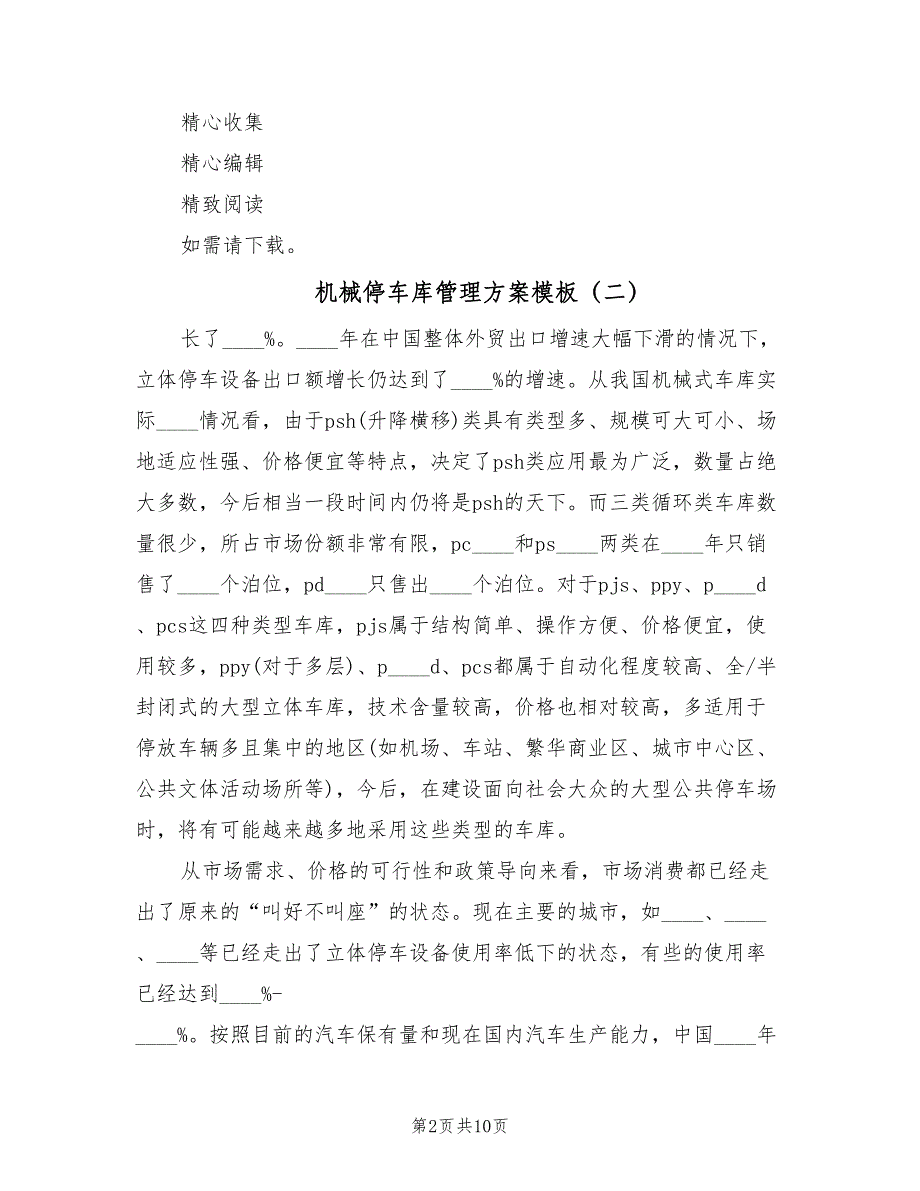 精心收集
精心编辑
精致阅读
如需请下载。
机械停车库管理方案模板（二）
长了____%。____年在中国整体外贸出口增速大幅下滑的情况下，
立体停车设备出口额增长仍达到了____%的增速。从我国机械式车库实
际____情况看，由于psh(升降横移)类具有类型多、规模可大可小、场
地适应性强、价格便宜等特点，决定了psh类应用最为广泛，数量占绝
大多数，今后相当一段时间内仍将是psh的天下。而三类循环类车库数
量很少，所占市场份额非常有限，pc____和ps____两类在____年只销
售了____个泊位，pd____只售出____个泊位。对于pjs、ppy、p____d
、pcs这四种类型车库，pjs属于结构简单、操作方便、价格便宜，使
用较多，ppy(对于多层)、p____d、pcs都属于自动化程度较高、全/半
封闭式的大型立体车库，技术含量较高，价格也相对较高，多适用于
停放车辆多且集中的地区(如机场、车站、繁华商业区、城市中心区、
公共文体活动场所等)，今后，在建设面向社会大众的大型公共停车场
时，将有可能越来越多地采用这些类型的车库。
从市场需求、价格的可行性和政策导向来看，市场消费都已经走
出了原来的“叫好不叫座”的状态。现在主要的城市，如____、____
、____等已经走出了立体停车设备使用率低下的状态，有些的使用率
已经达到____%-
____%。按照目前的汽车保有量和现在国内汽车生产能力，中国____年
第2页共10页